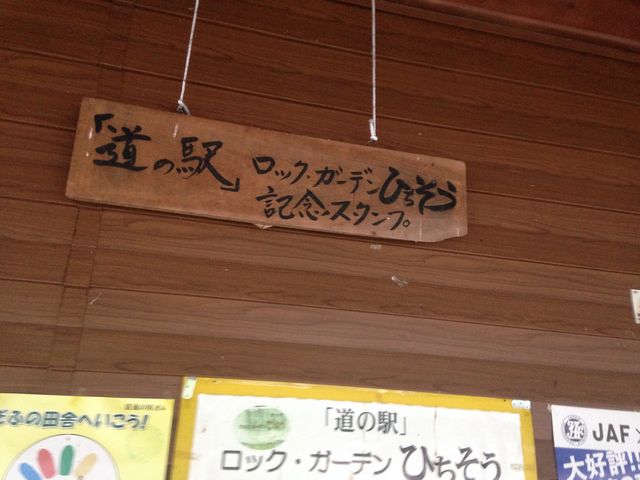 「道の駅」ロック・ガーデンひちそう
記念スタンプ
ぎふの田舎へいこう!
「道の駅」
ロック・ガーデン ひちそう
JAF×
大好評!!